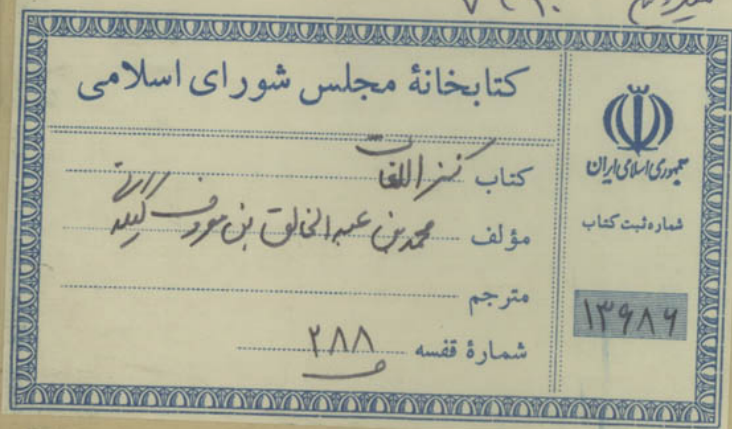 کتابخانهٔ مجلس شورای اسلامی
کتاب کنز اللغات
مؤلف محمد بن عبد الخالق بن معروف
مترجم
شمارهٔ قفسه ۲۸۸
جمهوری اسلامی ایران
شماره ثبت کتاب
۱۳۹۸۶